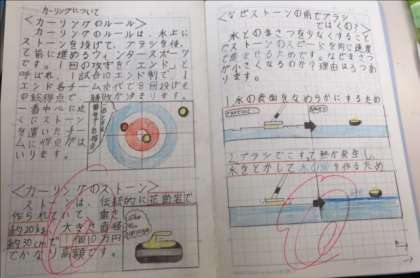 カーリングについて
＜カーリングのルール＞
カーリングのルールは、氷上に
ストーンを投げて、ブラシを使っ
て前に進めるウィンタースポーツ
です。1回の攻守を「エンド」と
呼ばれ、1試合10エンド制で、1
エンド各チーム交代で8回投げ
の総得点で、勝敗が決まります。
一番中心に近
くにストーン
を置いたチー
ムに得点が
はいります。
＜カーリングのストーン＞
ストーンは、伝統的に花崗岩で
作られていて、重さ
約20kg、大きさ直径
約30cmで、1個10万円
でかなり高額です。
＜なぜストーンの前でブラシ
ではくの？＞
氷とのまさつを少なくすること
でストーンのスピードを同じ速度
で進ませるためです。なぜまさつ
が小さくなるのか？理由は2つあ
ります。
1.氷の表面をなめらかにするため
2.ブラシでこすって熱が発生し、
氷をとかして
を作るため